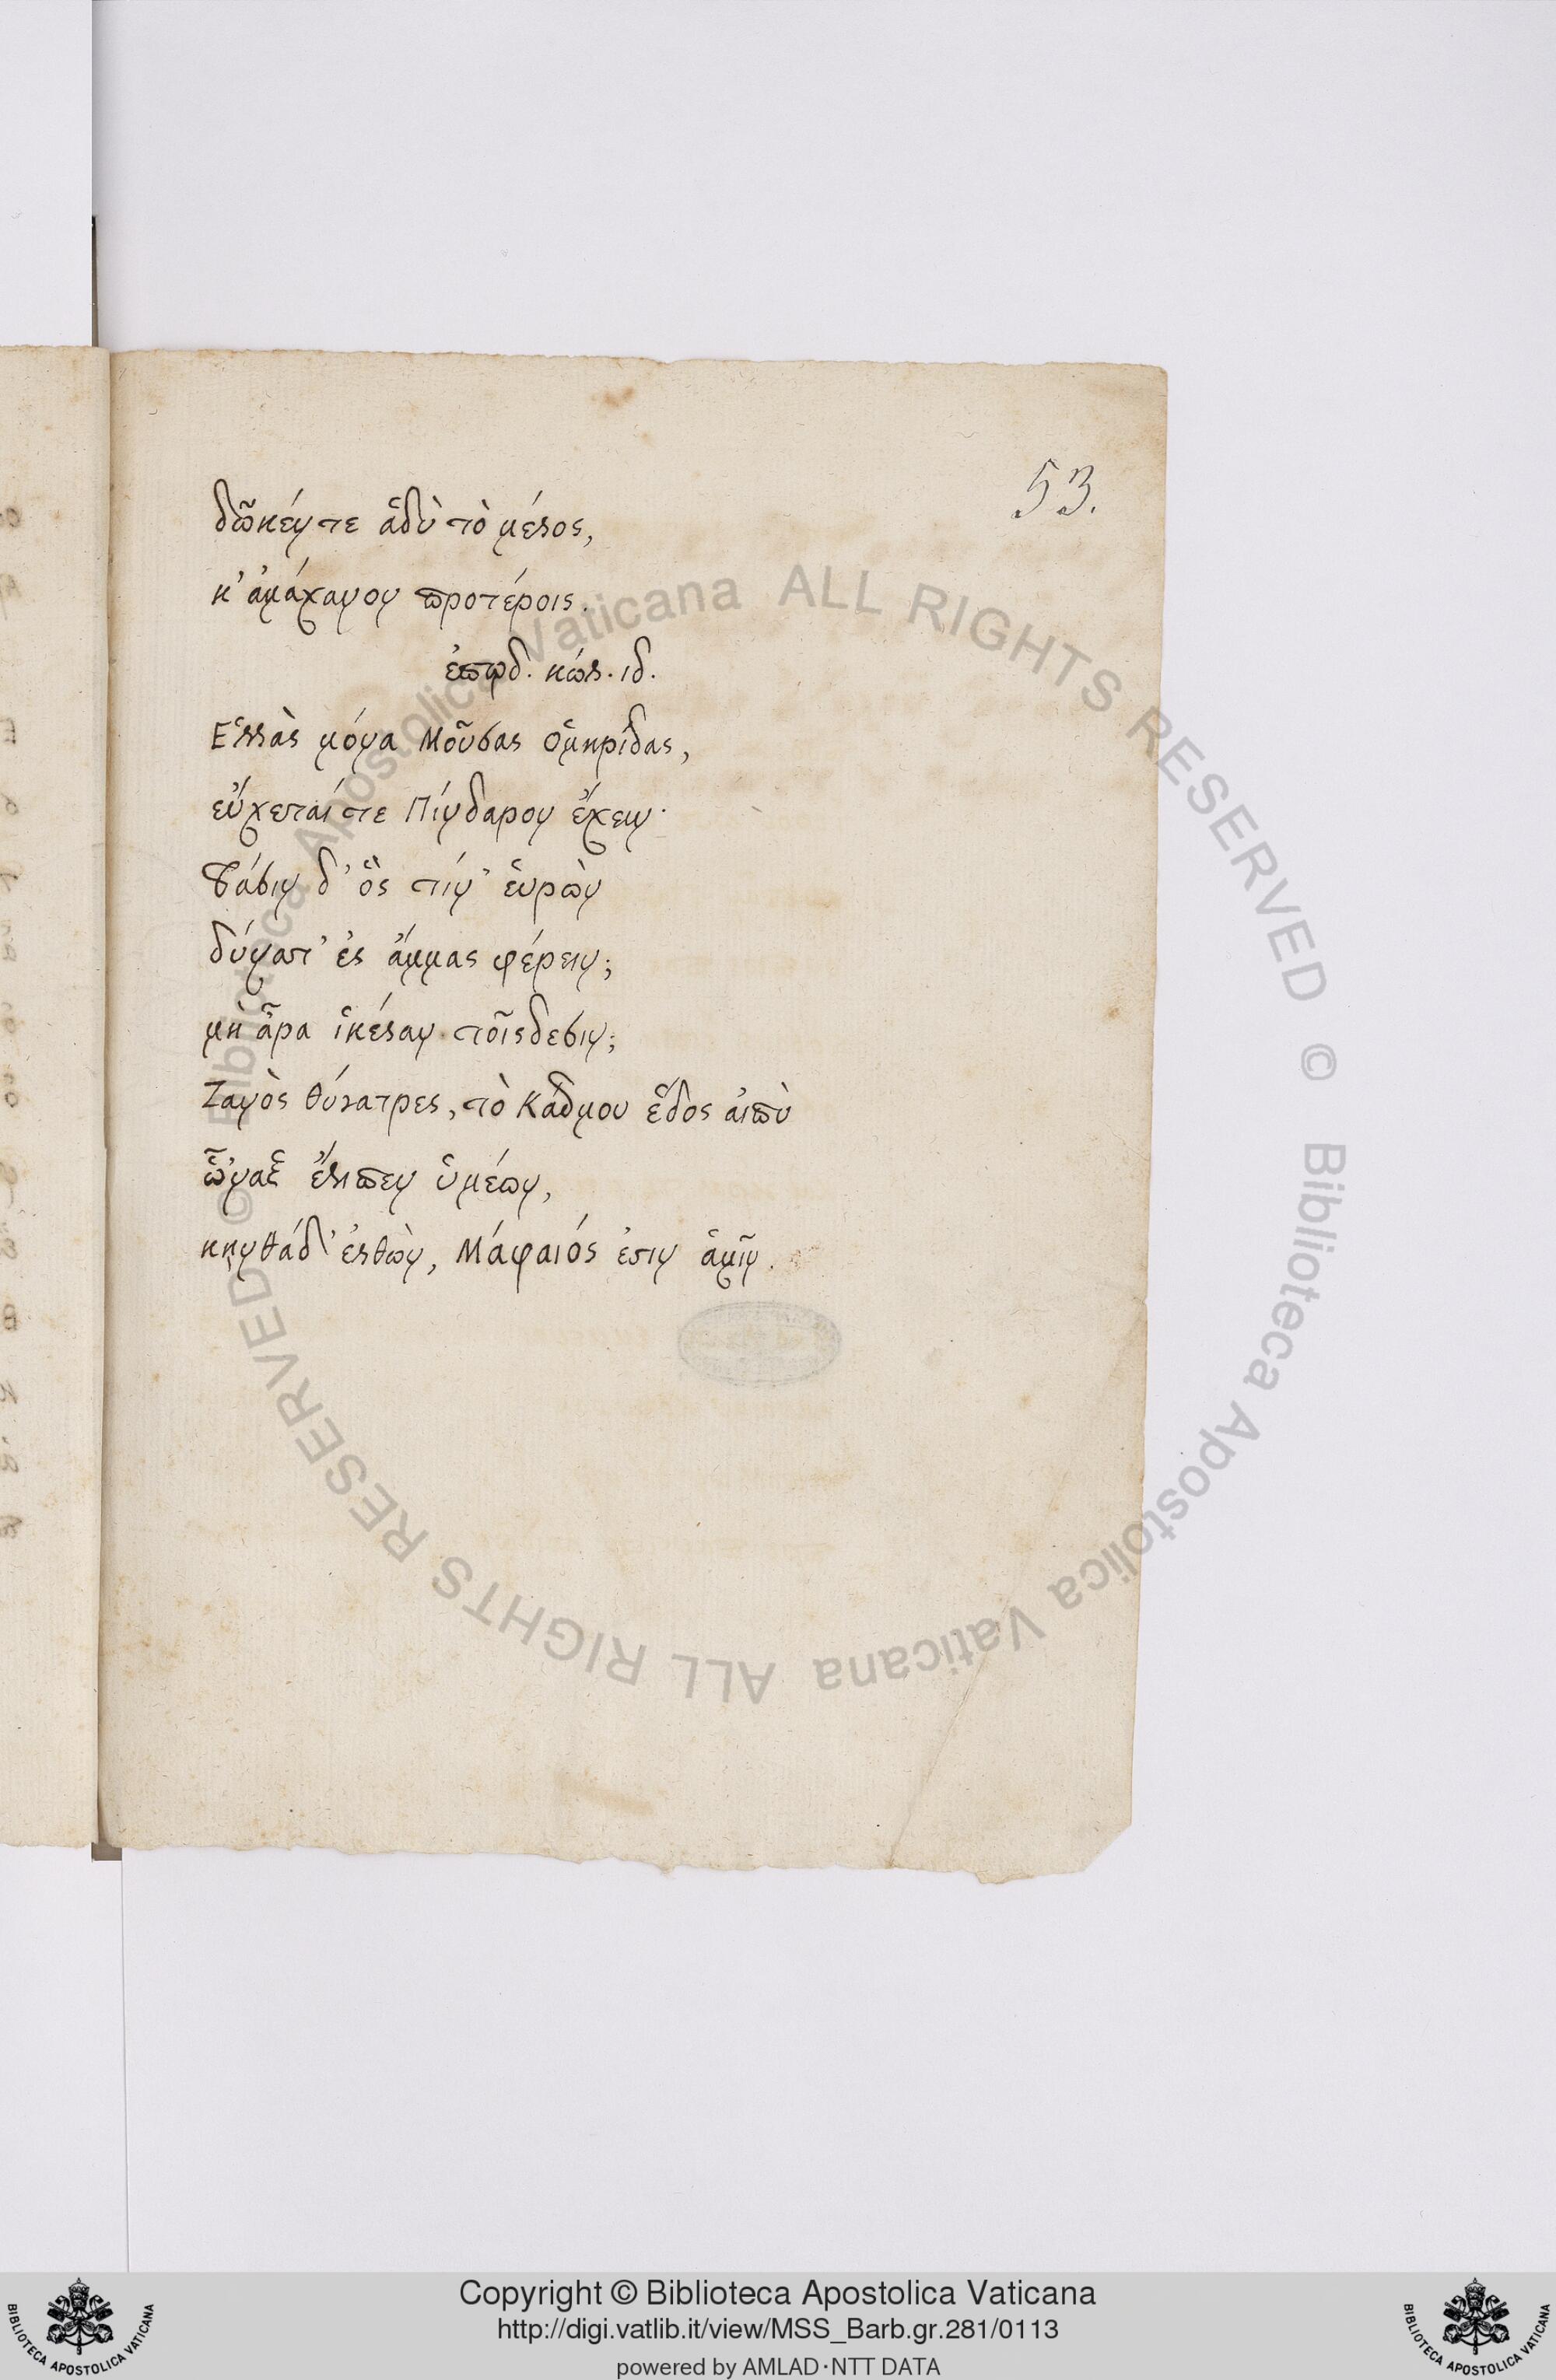 53.
δῶκέν τε ἁδὺ τὸ μέλος,
κ' ἀμάχανον προτέροις.
ἐπῳδ. κώλ. ιδ.
Ἑλλὰς μόνα Μοῦσας Ὁμηρίδας,
εὔχεταί τε Πίνδαρον ἔχειν·
Φάσιν δ' ὃς τίν' εὑρὼν
δύνατ' ἐς ἄμμας φέρειν;
μὴ ἆρα ἱκέλαν τοῖςδεσιν;
Ζανὸς θύγατρες, τὸ Κάδμου ἕδος αἰπὺ
ὦναξ ἔλιπεν ὑμέων,
κῃνθάδ' ἐλθὼν, Μάφαιός ἐστιν ἁμῖν.
Copyright © Biblioteca Apostolica Vaticana
http://digi.vatlib.it/view/MSS_Barb.gr.281/0113
powered by AMLAD·NTT DATA
BIBLIOTECA APOSTOLICA VATICANA
BIBLIOTECA APOSTOLICA VATICANA
© Biblioteca Apostolica Vaticana ALL RIGHTS RESERVED
© Biblioteca Apostolica Vaticana ALL RIGHTS RESERVED